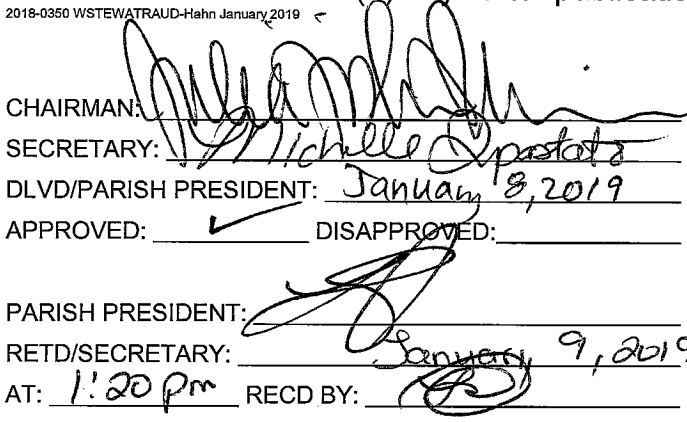 2018-0350 WSTEWATRAUD-Hahn January 2019
CHAIRMAN:
SECRETARY: Michelle
DLVD/PARISH PRESIDENT: January 8, 2019
APPROVED: ✓ DISAPPROVED:
PARISH PRESIDENT:
RETD/SECRETARY: January 9, 2019
AT: 1:20 pm RECD BY: